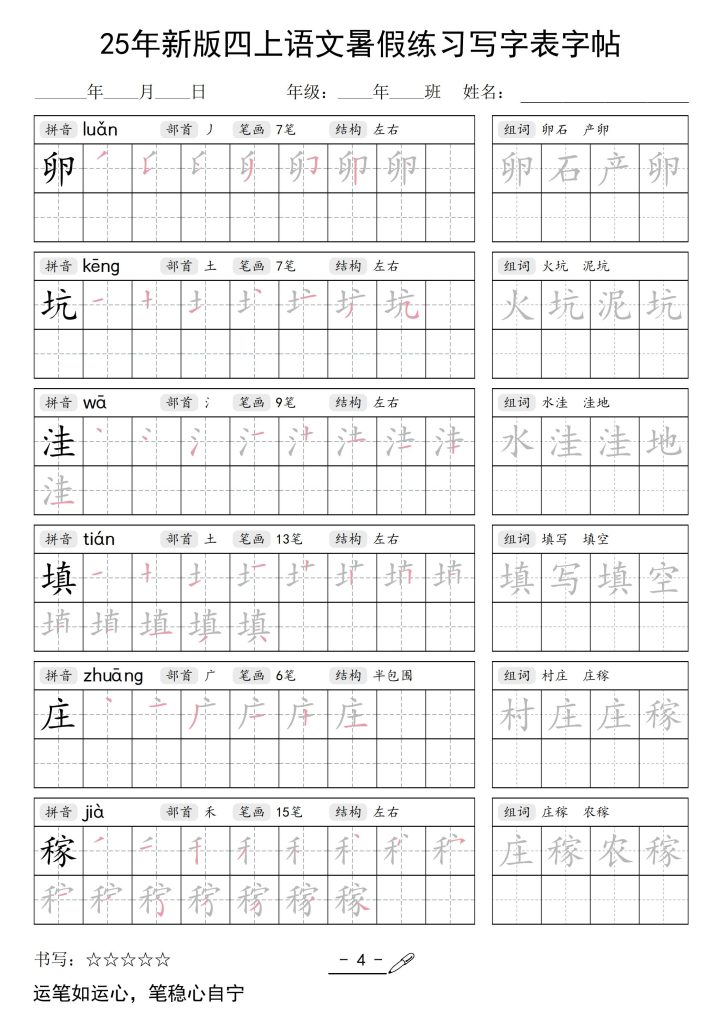 25年新版四上语文暑假练习写字表字帖
______年____月____日 年级：____年____班 姓名：
拼音 luǎn 部首 丿 笔画 7笔 结构 左右 组词 卵石 产卵
卵 卵石产卵
拼音 kēng 部首 土 笔画 7笔 结构 左右 组词 火坑 泥坑
坑 火坑泥坑
拼音 wā 部首 氵 笔画 9笔 结构 左右 组词 水洼 洼地
洼 水洼洼地
洼
拼音 tián 部首 土 笔画 13笔 结构 左右 组词 填写 填空
填 填写填空
填
拼音 zhuāng 部首 广 笔画 6笔 结构 半包围 组词 村庄 庄稼
庄 村庄庄稼
拼音 jià 部首 禾 笔画 15笔 结构 左右 组词 庄稼 农稼
稼 庄稼农稼
稼
书写：☆☆☆☆☆
- 4 -
运笔如运心，笔稳心自宁